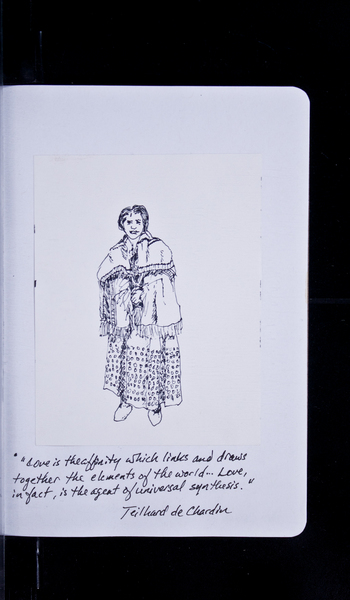 * "Love is the affinity which links and draws
together the elements of the world... Love,
in fact, is the agent of universal synthesis."
Teilhard de Chardin